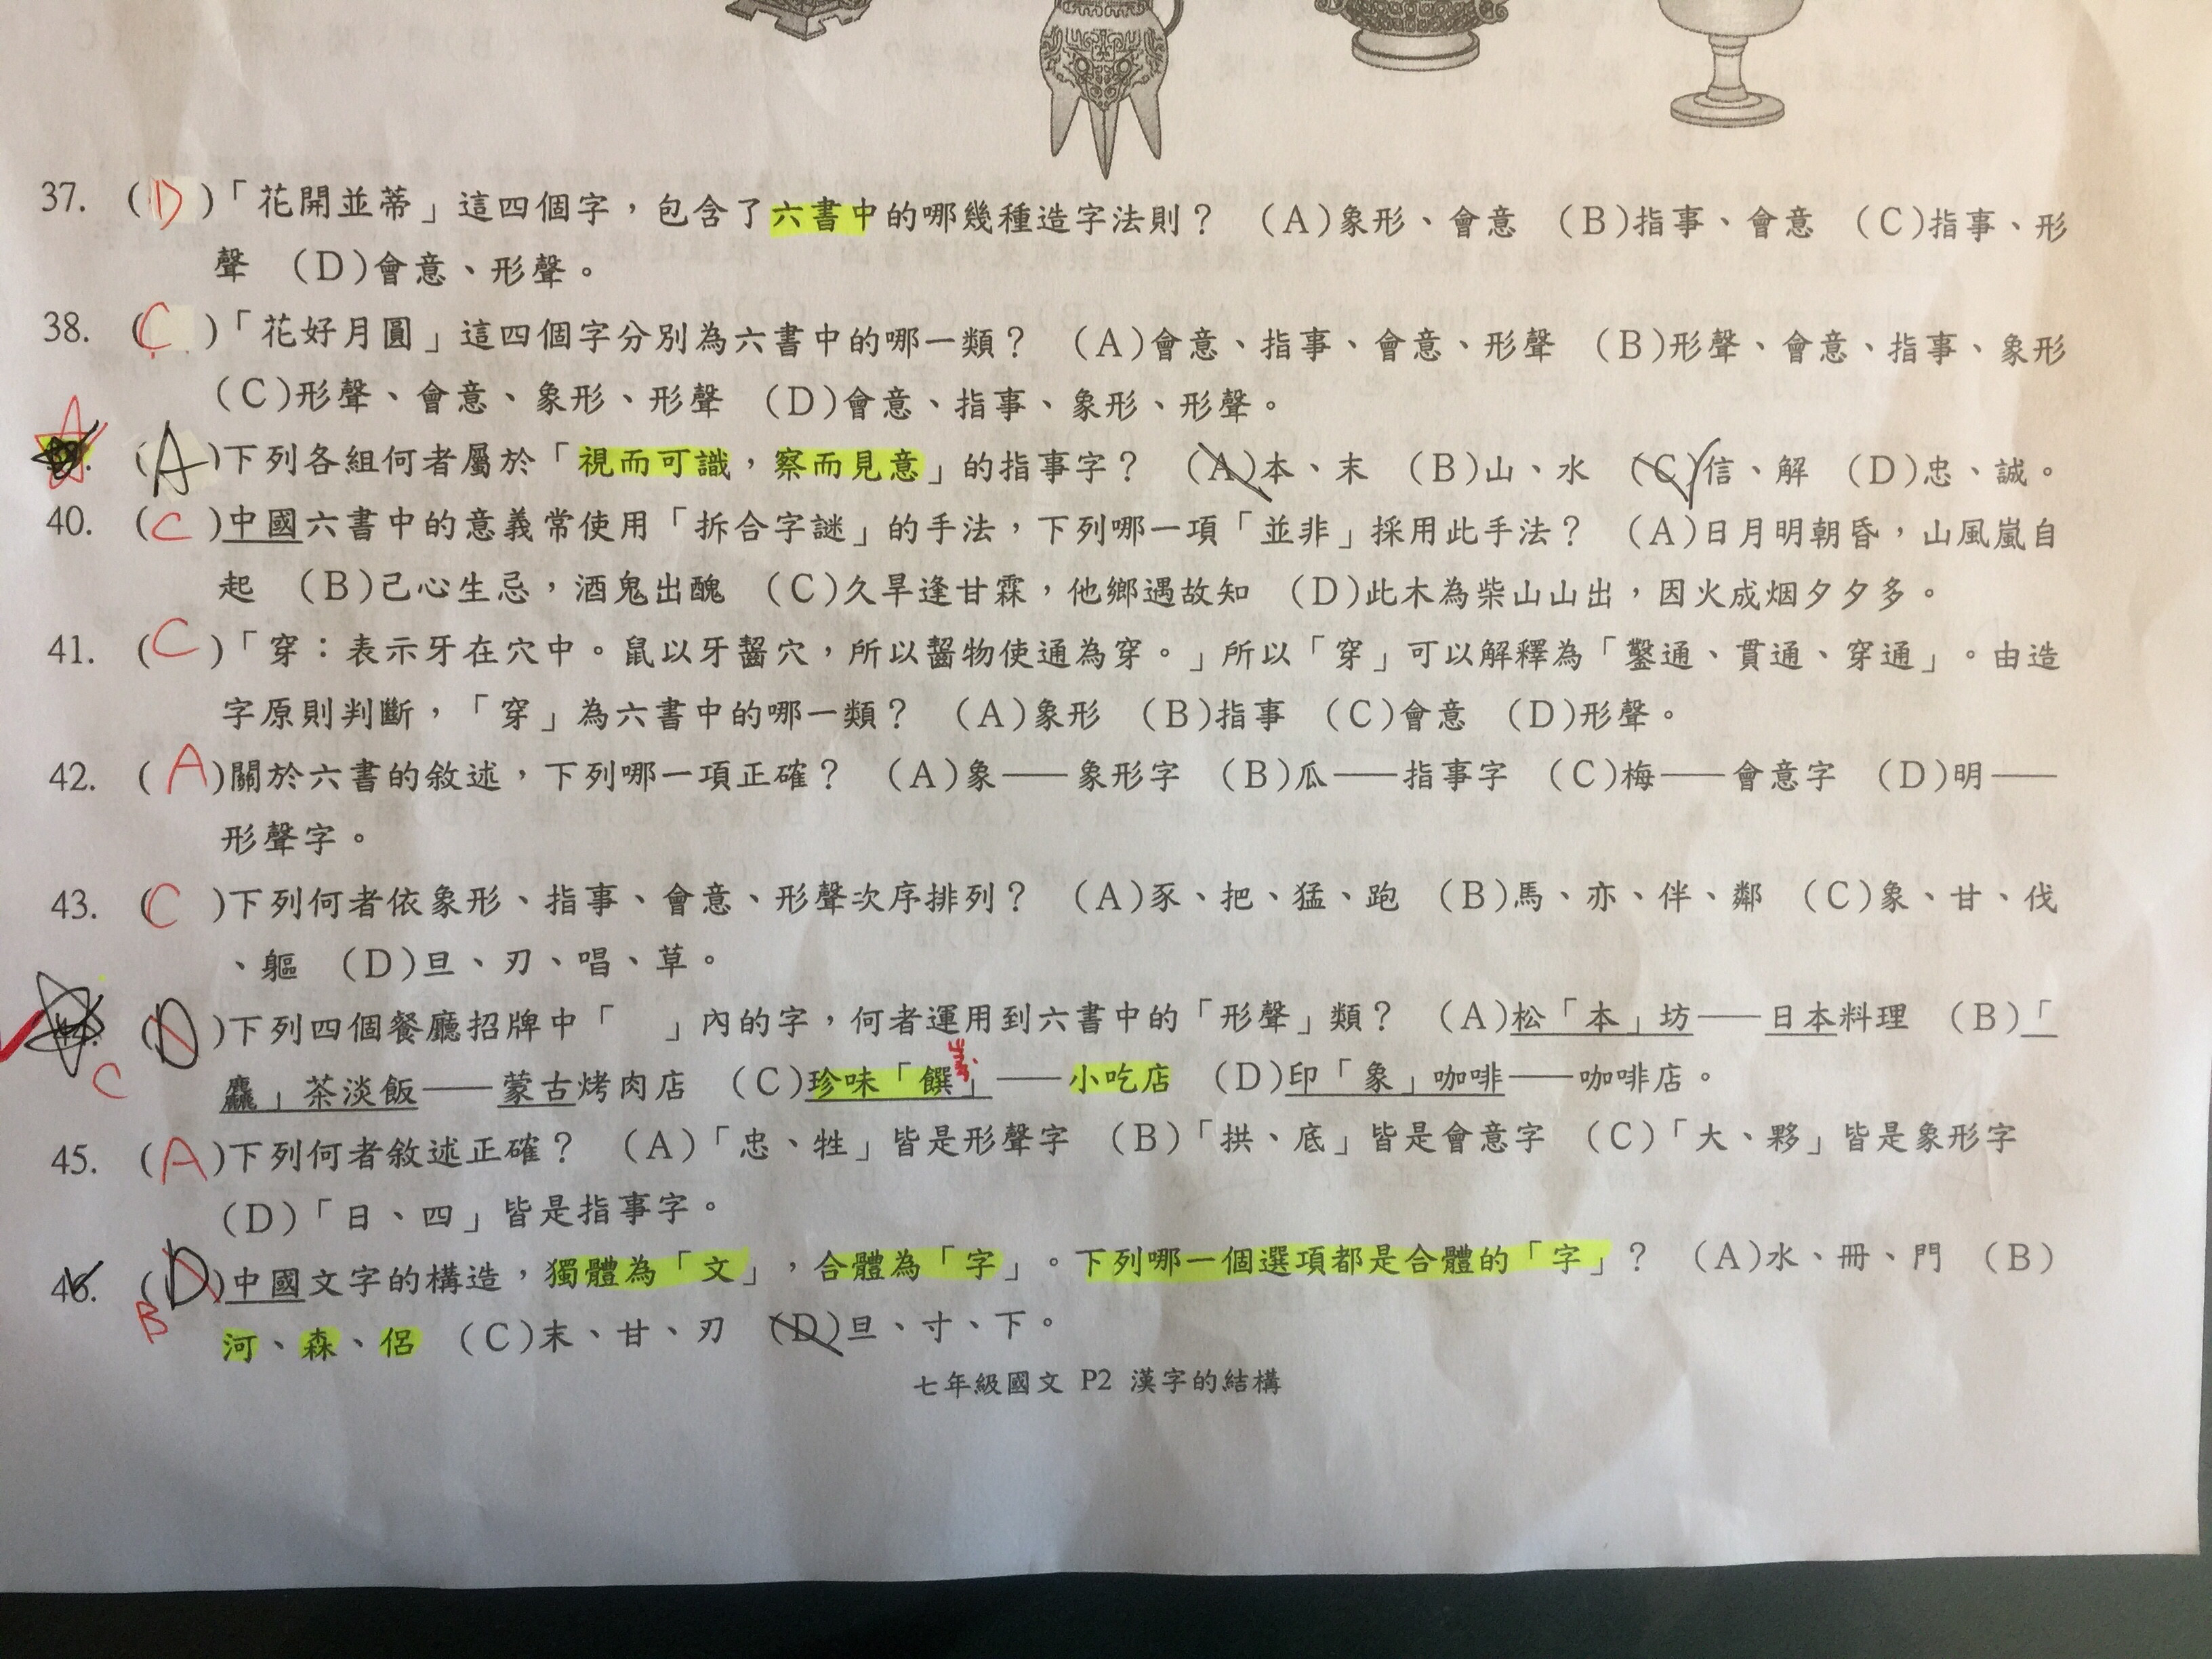 37. (D)「花開並蒂」這四個字，包含了六書中的哪幾種造字法則？ (A)象形、會意 (B)指事、會意 (C)指事、形
聲 (D)會意、形聲。
38. (C)「花好月圓」這四個字分別為六書中的哪一類？ (A)會意、指事、會意、形聲 (B)形聲、會意、指事、象形
(C)形聲、會意、象形、形聲 (D)會意、指事、象形、形聲。
(A)下列各組何者屬於「視而可識，察而見意」的指事字？ (A)本、末 (B)山、水 (C)信、解 (D)忠、誠。
40. (C)中國六書中的意義常使用「拆合字謎」的手法，下列哪一項「並非」採用此手法？ (A)日月明朝昏，山風嵐自
起 (B)己心生忌，酒鬼出醜 (C)久旱逢甘霖，他鄉遇故知 (D)此木為柴山山出，因火成烟夕夕多。
41. (C)「穿：表示牙在穴中。鼠以牙齧穴，所以齧物使通為穿。」所以「穿」可以解釋為「鑿通、貫通、穿通」。由造
字原則判斷，「穿」為六書中的哪一類？ (A)象形 (B)指事 (C)會意 (D)形聲。
42. (A)關於六書的敘述，下列哪一項正確？ (A)象——象形字 (B)瓜——指事字 (C)梅——會意字 (D)明——
形聲字。
43. (C)下列何者依象形、指事、會意、形聲次序排列？ (A)豕、把、猛、跑 (B)馬、亦、伴、鄰 (C)象、甘、伐
、軀 (D)旦、刃、唱、草。
44. (D)下列四個餐廳招牌中「　」內的字，何者運用到六書中的「形聲」類？ (A)松「本」坊——日本料理 (B)「
C
麤」茶淡飯——蒙古烤肉店 (C)珍味「饌」——小吃店 (D)印「象」咖啡——咖啡店。
45. (A)下列何者敘述正確？ (A)「忠、牲」皆是形聲字 (B)「拱、底」皆是會意字 (C)「大、夥」皆是象形字
(D)「日、四」皆是指事字。
46. (D)中國文字的構造，獨體為「文」，合體為「字」。下列哪一個選項都是合體的「字」？ (A)水、冊、門 (B)
B
河、森、侶 (C)末、甘、刃 (D)旦、寸、下。
七年級國文 P2 漢字的結構